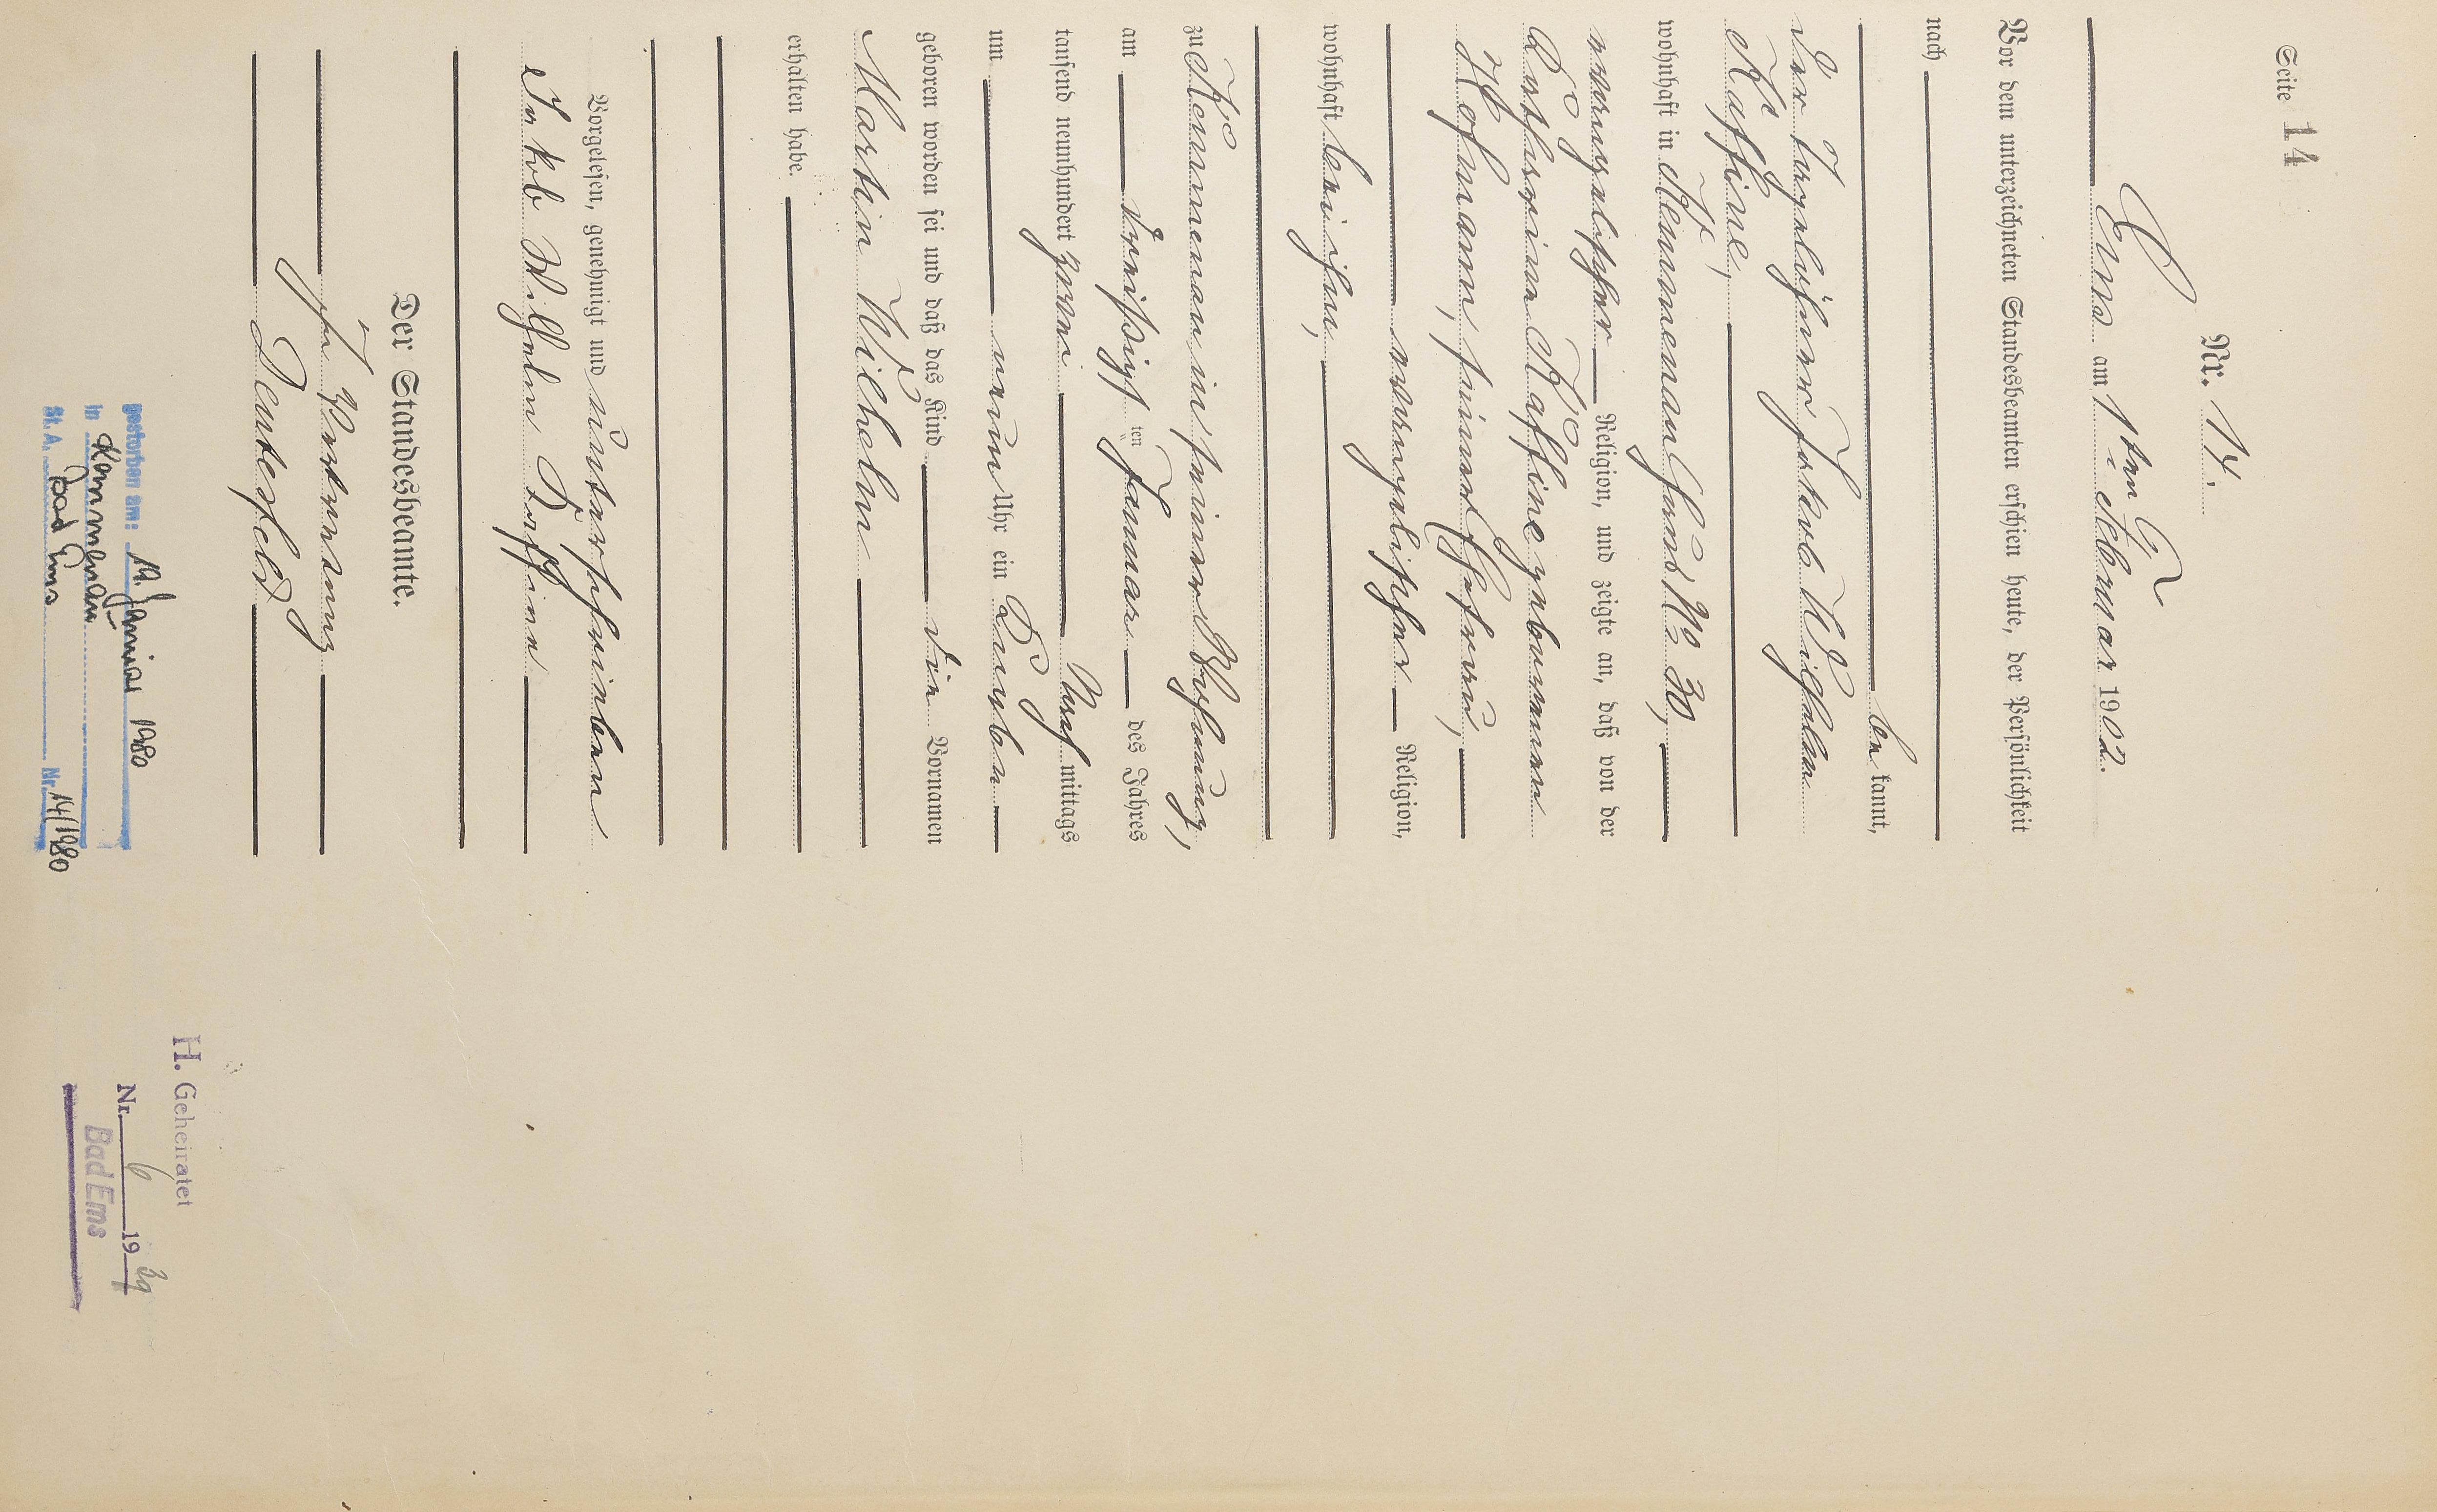 Seite 14
Nr. 14.
Ems am 1ten Februar 1902.
Vor dem unterzeichneten Standesbeamten erschien heute, der Persönlichkeit
nach
be kannt,
der Tagelöhner Jakob Wilhelm
wohnhaft in Kemmenau Haus No 30,
evangelischer Religion, und zeigte an, daß von der
geborenen
Hofmann, seiner Ehefrau,
evangelischer Religion,
wohnhaft bei ihm,
zu Kemmenau in seiner Wohnung,
am dreißigsten Januar des Jahres
tausend neunhundert zwei Nach mittags
um neun Uhr ein Knabe
geboren worden sei und daß das Kind die Vornamen
Martin Wilhelm
erhalten habe.
Vorgelesen, genehmigt und unterschrieben
Jakob Wilhelm
Der Standesbeamte.
In Vertretung
gestorben am: 19. Januar 1980
in Kemmenau
St. A. Bad Ems Nr. 14/1980
H. Geheiratet
Nr. 6 19 39
Bad Ems